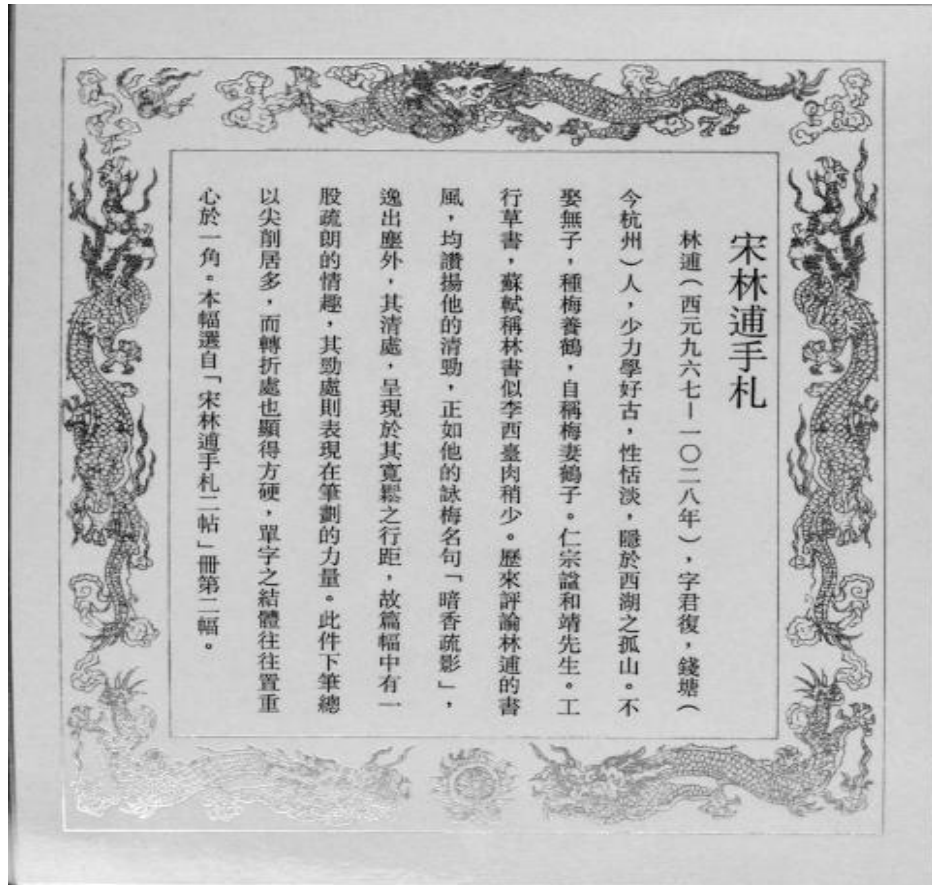 宋林逋手札
林逋（西元九六七—一〇二八年），字君復，錢塘（
今杭州）人，少力學好古，性恬淡，隱於西湖之孤山。不
娶無子，種梅養鶴，自稱梅妻鶴子。仁宗諡和靖先生。工
行草書，蘇軾稱林書似李西臺肉稍少。歷來評論林逋的書
風，均讚揚他的清勁，正如他的詠梅名句「暗香疏影」，
逸出塵外，其清處，呈現於其寬鬆之行距，故篇幅中有一
股疏朗的情趣，其勁處則表現在筆劃的力量。此件下筆總
以尖削居多，而轉折處也顯得方硬，單字之結體往往置重
心於一角。本幅選自「宋林逋手札二帖」冊第二幅。